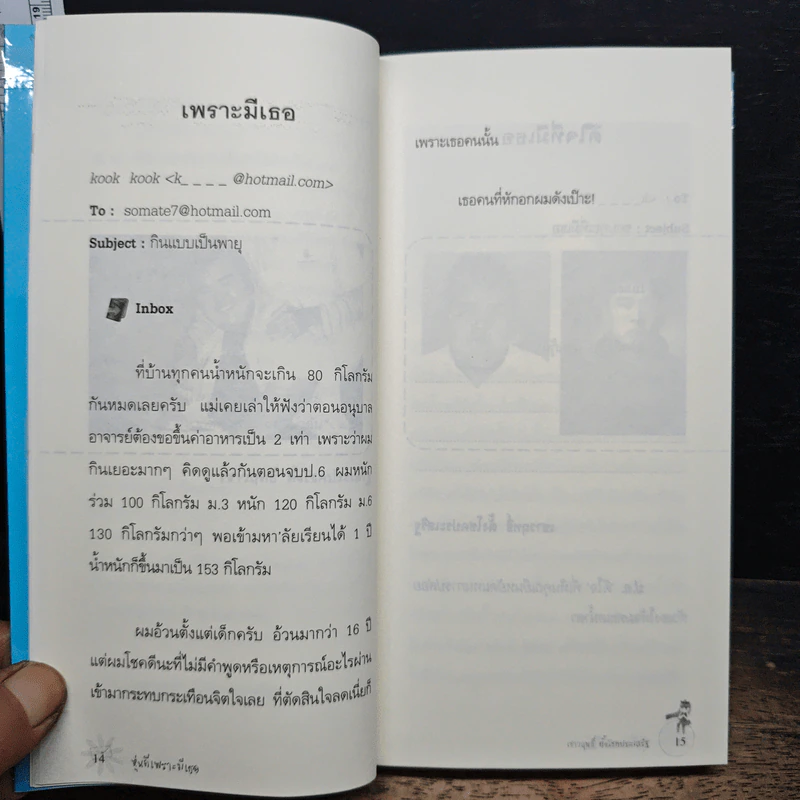 เพราะมีเธอ
kook kook <k_ _ _ _ @hotmail.com>
To : somate7@hotmail.com
Subject : กินแบบเป็นพายุ
Inbox
ที่บ้านทุกคนน้ำหนักจะเกิน 80 กิโลกรัม
กันหมดเลยครับ แม่เคยเล่าให้ฟังว่าตอนอนุบาล
อาจารย์ต้องขอขึ้นค่าอาหารเป็น 2 เท่า เพราะว่าผม
กินเยอะมากๆ คิดดูแล้วกันตอนจบป.6 ผมหนัก
ร่วม 100 กิโลกรัม ม.3 หนัก 120 กิโลกรัม ม.6
130 กิโลกรัมกว่าๆ พอเข้ามหา'ลัยเรียนได้ 1 ปี
น้ำหนักก็ขึ้นมาเป็น 153 กิโลกรัม
ผมอ้วนตั้งแต่เด็กครับ อ้วนมากว่า 16 ปี
แต่ผมโชคดีนะที่ไม่มีคำพูดหรือเหตุการณ์อะไรผ่าน
เข้ามากระทบกระเทือนจิตใจเลย ที่ตัดสินใจลดเนี่ยก็
14 หุ่นดีเพราะมีเธอ
เพราะเธอคนนั้น
เธอคนที่หักอกผมดังเป๊าะ!
15